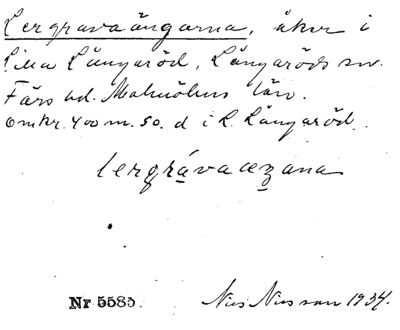 Lergravaängarna, åker i
Lilla Långaröd, Långaröds sn.
Färs hd. Malmöhus län.
Omkr. 400 m. so. d i L. Långaröd.
lergrávaæzana
Nr 5585.
Nils Nilsson 1934.